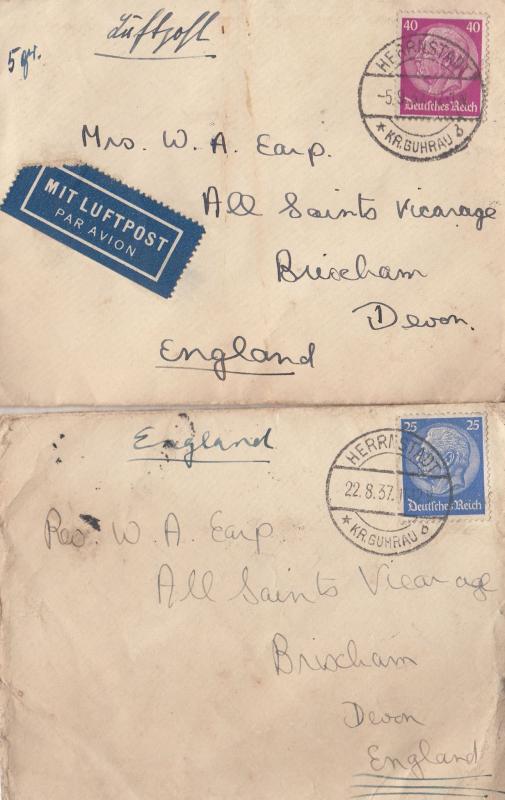 Luftpost
5 gr.
40 40
Deutsches Reich
HERRNSTADT
-5.9.37
* KR. GUHRAU
Mrs. W. A. Earp.
All Saints Vicarage
Brixham
Devon.
England
MIT LUFTPOST
PAR AVION
England
25 25
Deutsches Reich
HERRNSTADT
22.8.37.
* KR. GUHRAU
Rev. W. A. Earp.
All Saints Vicarage
Brixham
Devon
England